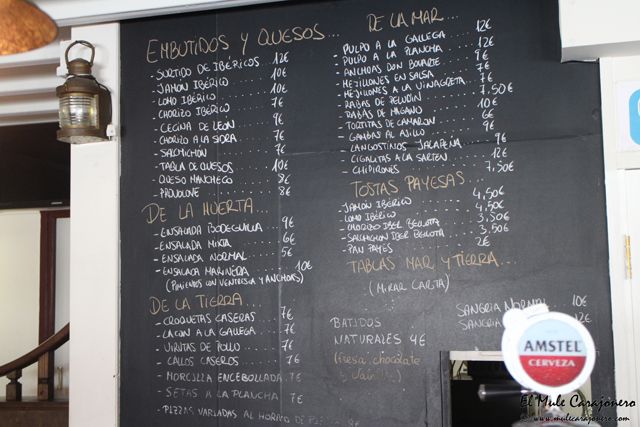 EMBUTIDOS Y QUESOS...
- SURTIDO DE IBÉRICOS 12€
- JAMÓN IBÉRICO 10€
- LOMO IBÉRICO 10€
- CHORIZO IBÉRICO 7€
- CECINA DE LEÓN 9€
- CHORIZO A LA SIDRA 7€
- SALCHICHÓN 7€
- TABLA DE QUESOS 10€
- QUESO MANCHEGO 8€
- PROVOLONE 8€
DE LA HUERTA...
- ENSALADA BODEGUILLA 9€
- ENSALADA MIXTA 6€
- ENSALADA NORMAL 5€
- ENSALADA MARINERA 10€
(PIMIENTOS CON VENTRESCA Y ANCHOAS)
DE LA TIERRA...
- CROQUETAS CASERAS 7€
- LACÓN A LA GALLEGA 7€
- VIRUTAS DE POLLO 7€
- CALLOS CASEROS 7€
- MORCILLA ENCEBOLLADA 7€
- SETAS A LA PLANCHA 7€
- PIZZAS VARIADAS AL HORNO DE
DE LA MAR...
- PULPO A LA GALLEGA 12€
- PULPO A LA PLANCHA 12€
- ANCHOAS DON BOCARTE 9€
- MEJILLONES EN SALSA 7€
- MEJILLONES A LA VINAGRETA 7€
- RABAS DE PELUDÍN 7,50€
- RABAS DE MAGANO 10€
- TORTITAS DE CAMARÓN 6€
- GAMBAS AL AJILLO 9€
- LANGOSTINOS JALAPEÑA 9€
- CIGALITAS A LA SARTÉN 12€
- CHIPIRONES 7,50€
TOSTAS PAYESAS...
- JAMÓN IBÉRICO 4,50€
- LOMO IBÉRICO 4,50€
- CHORIZO IBER BELLOTA 3,50€
- SALCHICHÓN IBER BELLOTA 3,50€
- PAN PAYÉS 2€
TABLAS MAR Y TIERRA...
(MIRAR CARTA)
BATIDOS
NATURALES 4€
(Fresa chocolate
SANGRIA NORMAL 10€
SANGRIA 12€
AMSTEL
CERVEZA
El Mule Carajonero
© www.mulecarajonero.com